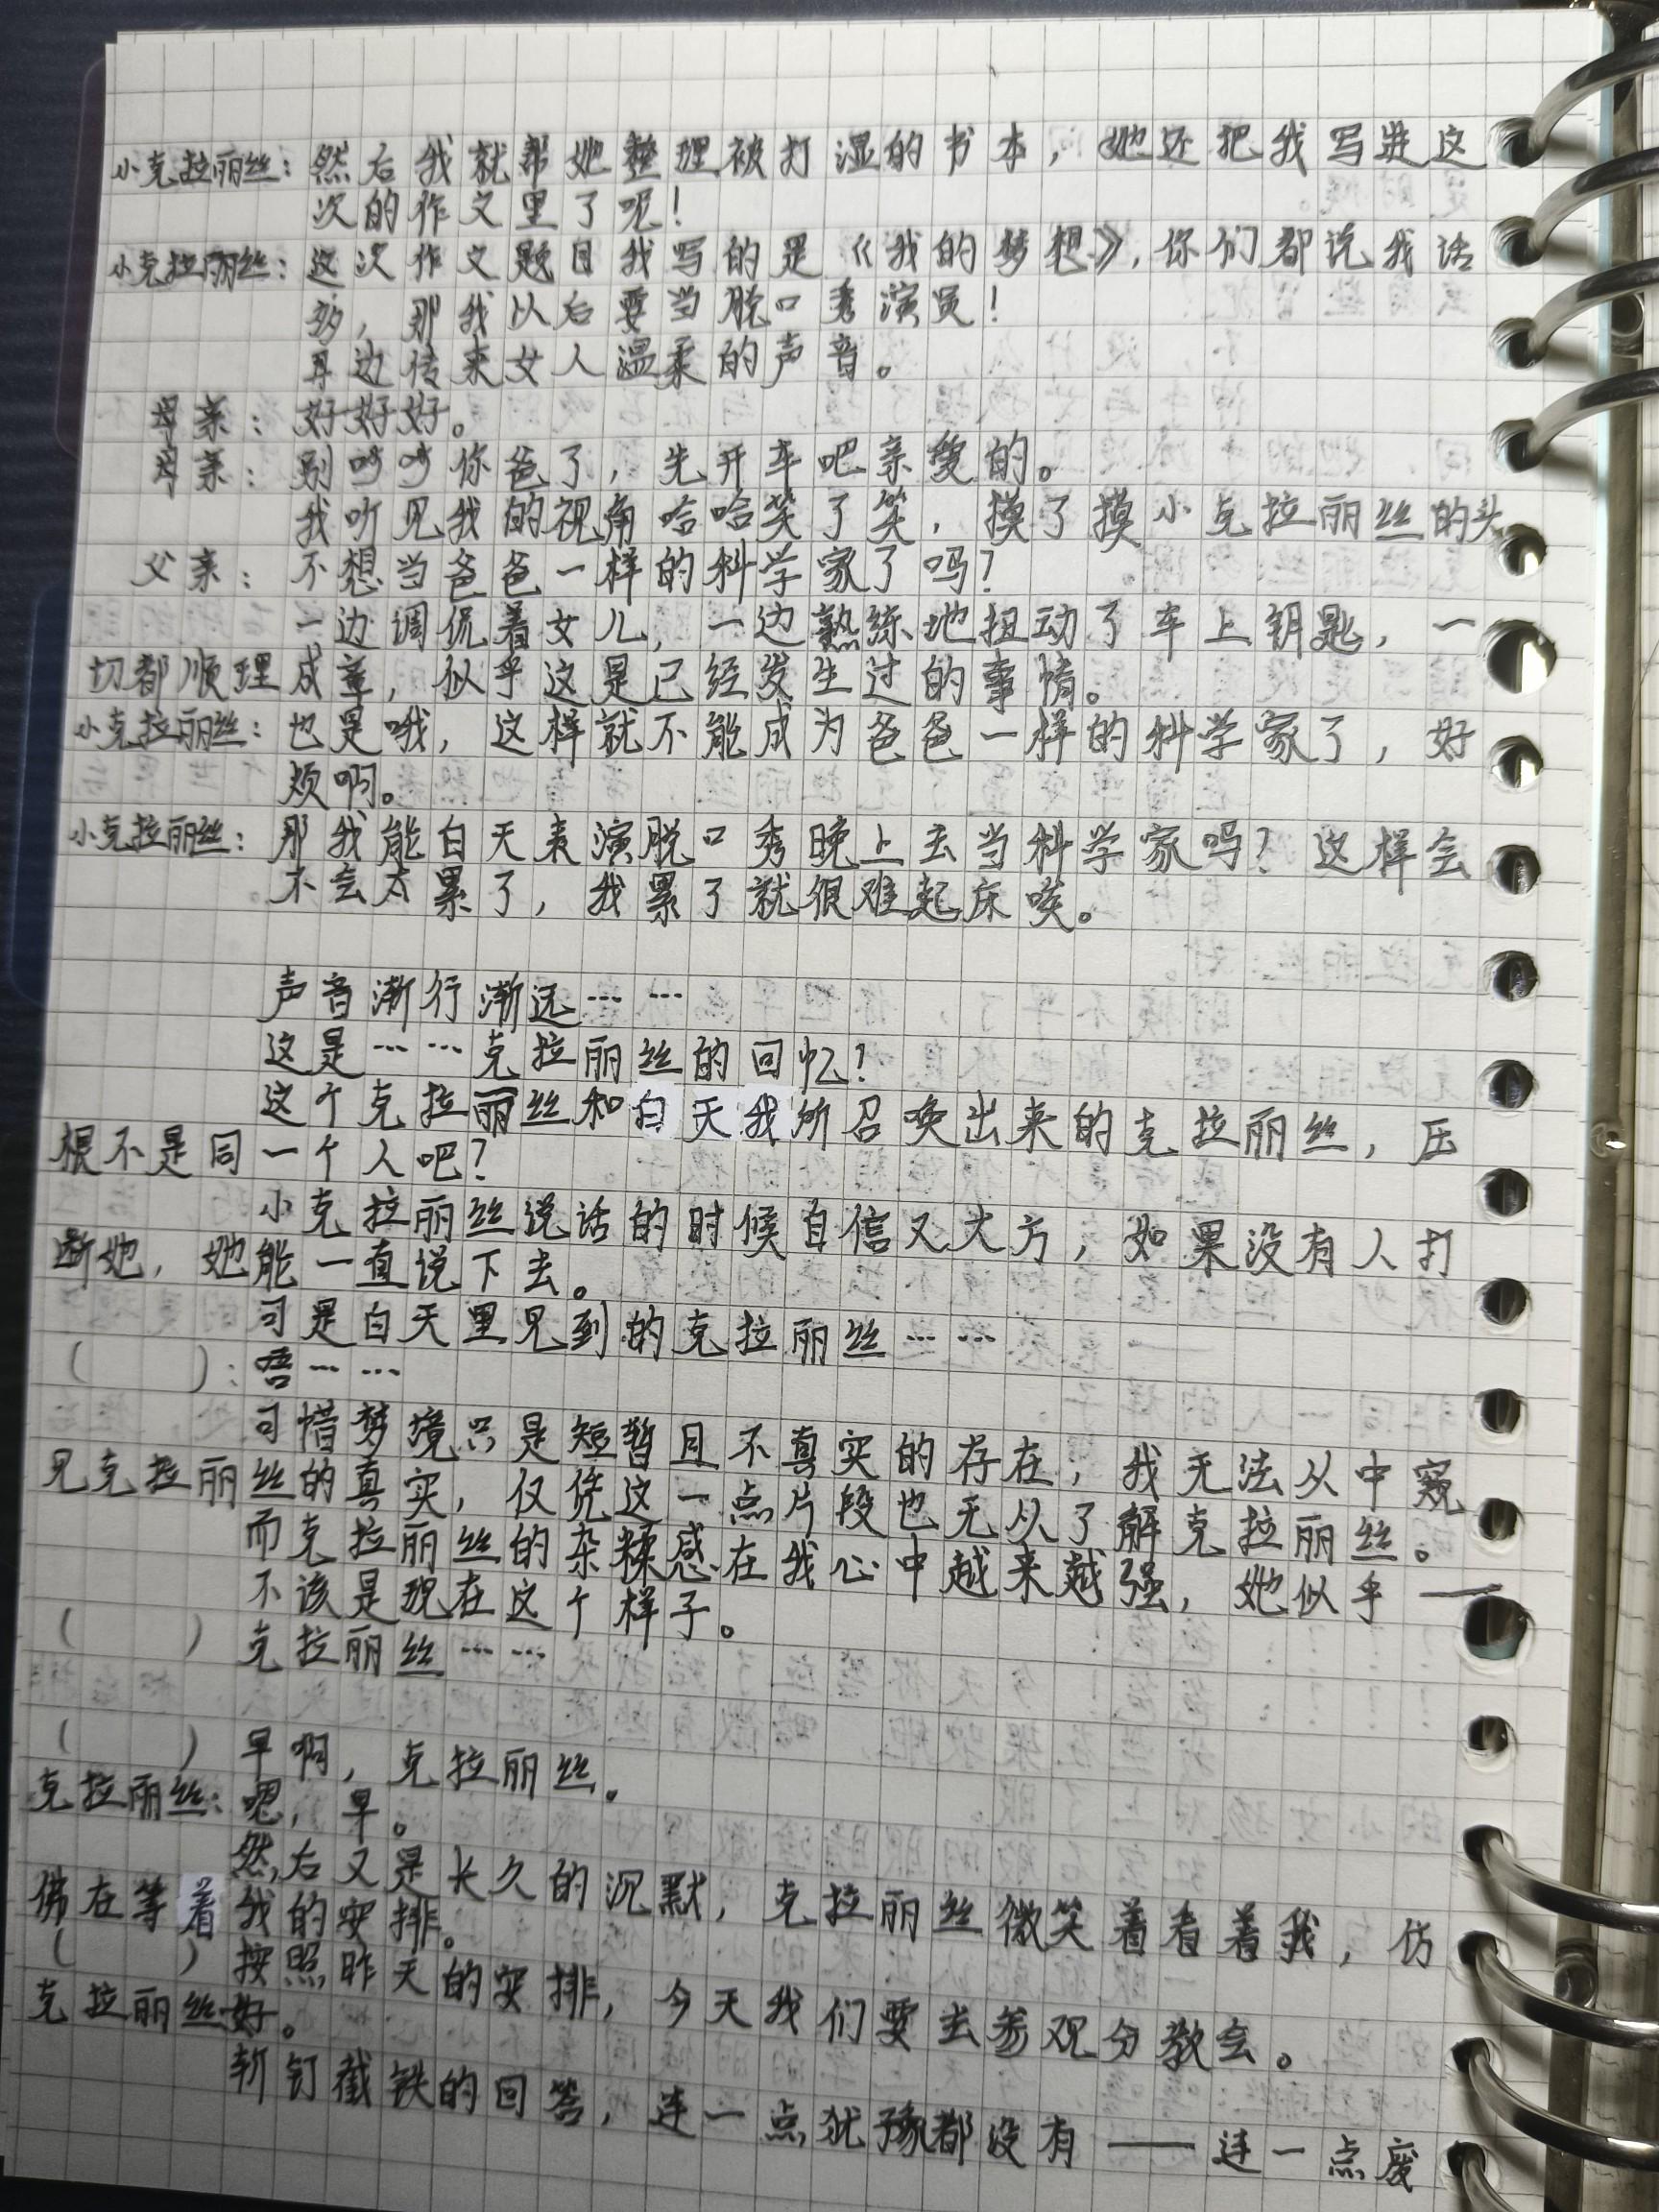 小克拉丽丝：然后我就帮她整理被打湿的书本，她还把我写进这
次的作文里了呢！
小克拉丽丝：这次作文题目我写的是《我的梦想》，你们都说我话
多，那我以后要当脱口秀演员！
耳边传来女人温柔的声音。
母亲：好好好。
母亲：别吵吵你爸了，先开车吧亲爱的。
我听见我的视角哈哈笑了笑，摸了摸小克拉丽丝的头
父亲：不想当爸爸一样的科学家了吗？
一边调侃着女儿，一边熟练地扭动了车上钥匙，一
切都顺理成章，似乎这是已经发生过的事情。
小克拉丽丝：也是哦，这样就不能成为爸爸一样的科学家了，好
烦啊。
小克拉丽丝：那我能白天表演脱口秀晚上去当科学家吗？这样会
不会太累了，我累了就很难起床唉。
声音渐行渐远……
这是……克拉丽丝的回忆？
这个克拉丽丝和白天我所召唤出来的克拉丽丝，压
根不是同一个人吧？
小克拉丽丝说话的时候自信又大方，如果没有人打
断她，她能一直说下去。
可是白天里见到的克拉丽丝……
（ ）：唔……
可惜梦境只是短暂且不真实的存在，我无法从中窥
见克拉丽丝的真实，仅凭这一点片段也无从了解克拉丽丝。
而克拉丽丝的杂糅感在我心中越来越强，她似乎——
不该是现在这个样子。
（ ）克拉丽丝……
（ ）早啊，克拉丽丝。
克拉丽丝：嗯，早。
然后又是长久的沉默，克拉丽丝微笑着看着我，仿
佛在等着我的安排。
（ ）按照昨天的安排，今天我们要去参观分教会。
克拉丽丝好。
斩钉截铁的回答，连一点犹豫都没有——连一点废